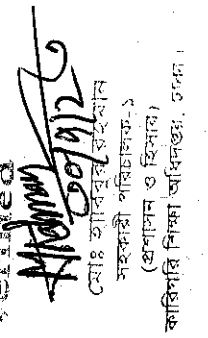 ৩০/৭/১২
মোঃ হাবিবুর রহমান
সহকারী পরিচালক-১
(প্রশাসন ও হিসাব)
কারিগরি শিক্ষা অধিদপ্তর, ঢাকা।